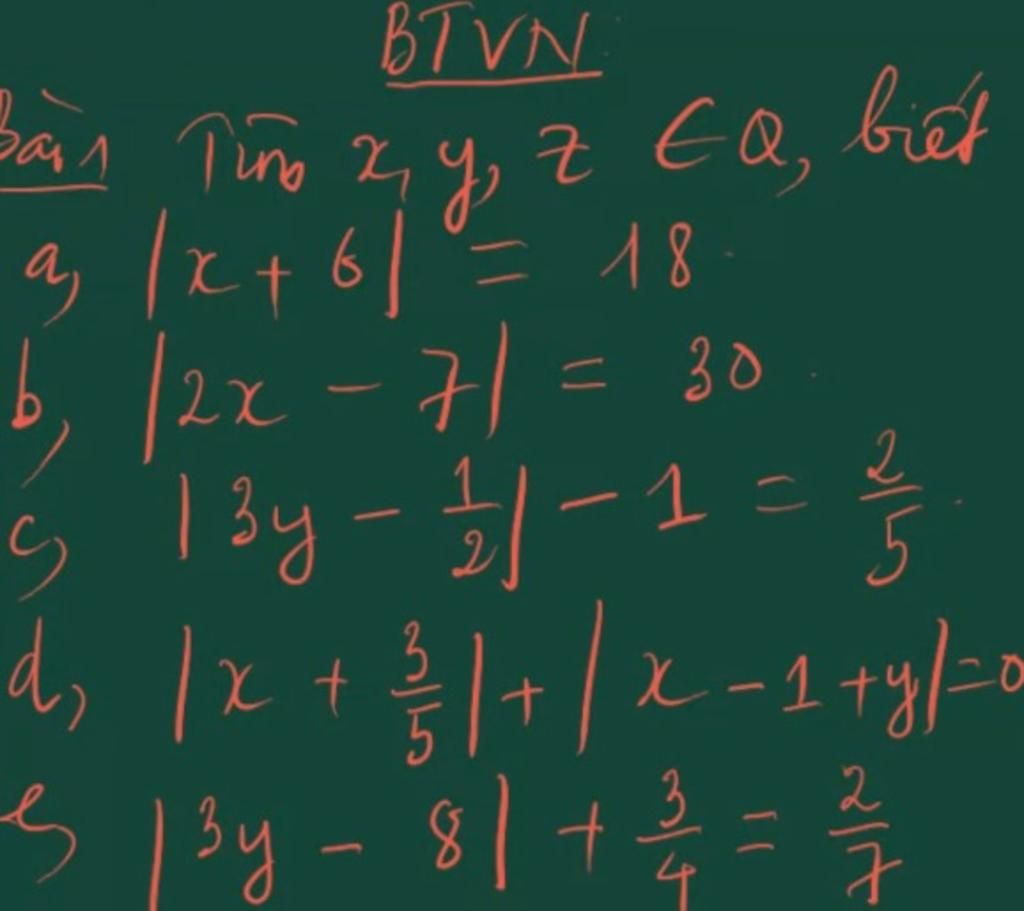 BTVN
Bài 1 Tìm x, y, z ∈ Q, biết
a, |x + 6| = 18.
b, |2x - 7| = 30.
c, |3y - 1/2| - 1 = 2/5.
d, |x + 3/5| + |x - 1 + y| = 0
e, |3y - 8| + 3/4 = 2/7